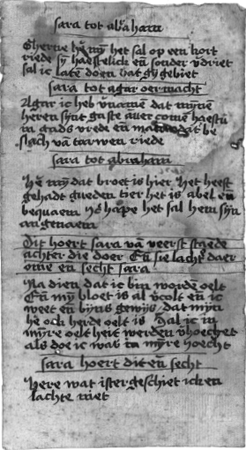 sara tot abraham
Gherne he my het sal op een kort
riede sy haestelick en sonder vdriet
sal ic laten doen dat gy gebiet
sara tot agar oer macht
Agar ic heb vnome dat myne
heren synt gaste auer come haestu
in gads vrede en dat be
slach va tarwen riede
sara tot abraham
He my dat broet is hier Het heest
gehadt gueden tier het is abel en
bequaem Ic hape het sal hem syn
angenaem
Dit hoert sara va veerst staede
achter die doer En sie lacht daer
ome en secht sara
Na dien dat ic bin worde oelt
En my bloet is al vcolt en ic
weet en byns gewys dat myn
he och herde oelt is Sal ic in
myre oelt heit werden vhoechet
als doe ic was in myre joecht
sara hoert dit en secht
Here wat ister geschiet ic en
lachte niet